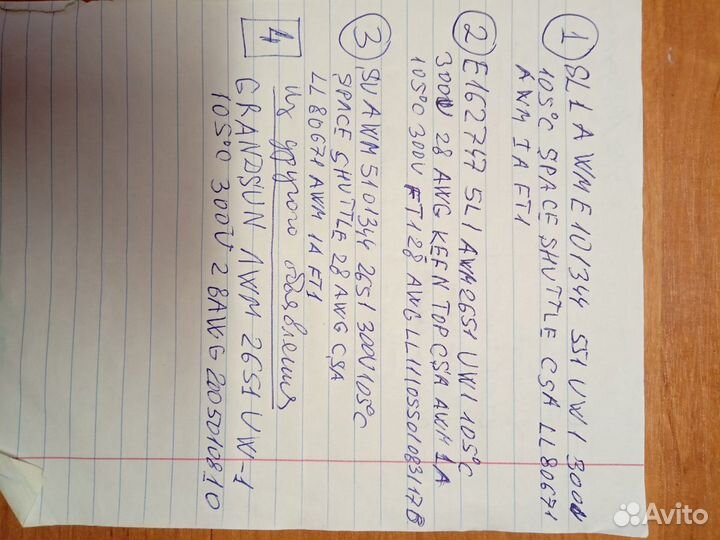 1 SL1 AWM E101344 551 UW1 300V
105°C SPACE SHUTTLE CSA LL80671
AWM IA FT1
2 E162747 5L1 AWM2651 UW1 105°C
300V 28 AWG KEEN TOP CSA AWM 1A
105°C 300V FT1 28 AWG LL111055010831178
3 SU AWM 5101344 2651 300V105°C
SPACE SHUTTLE 28 AWG CSA
LL80671 AWM 1A FT1
4 Из другого объявления
GRANDSUN AWM 2651 UW-1
105°C 300V 28AWG 2005010810
Avito